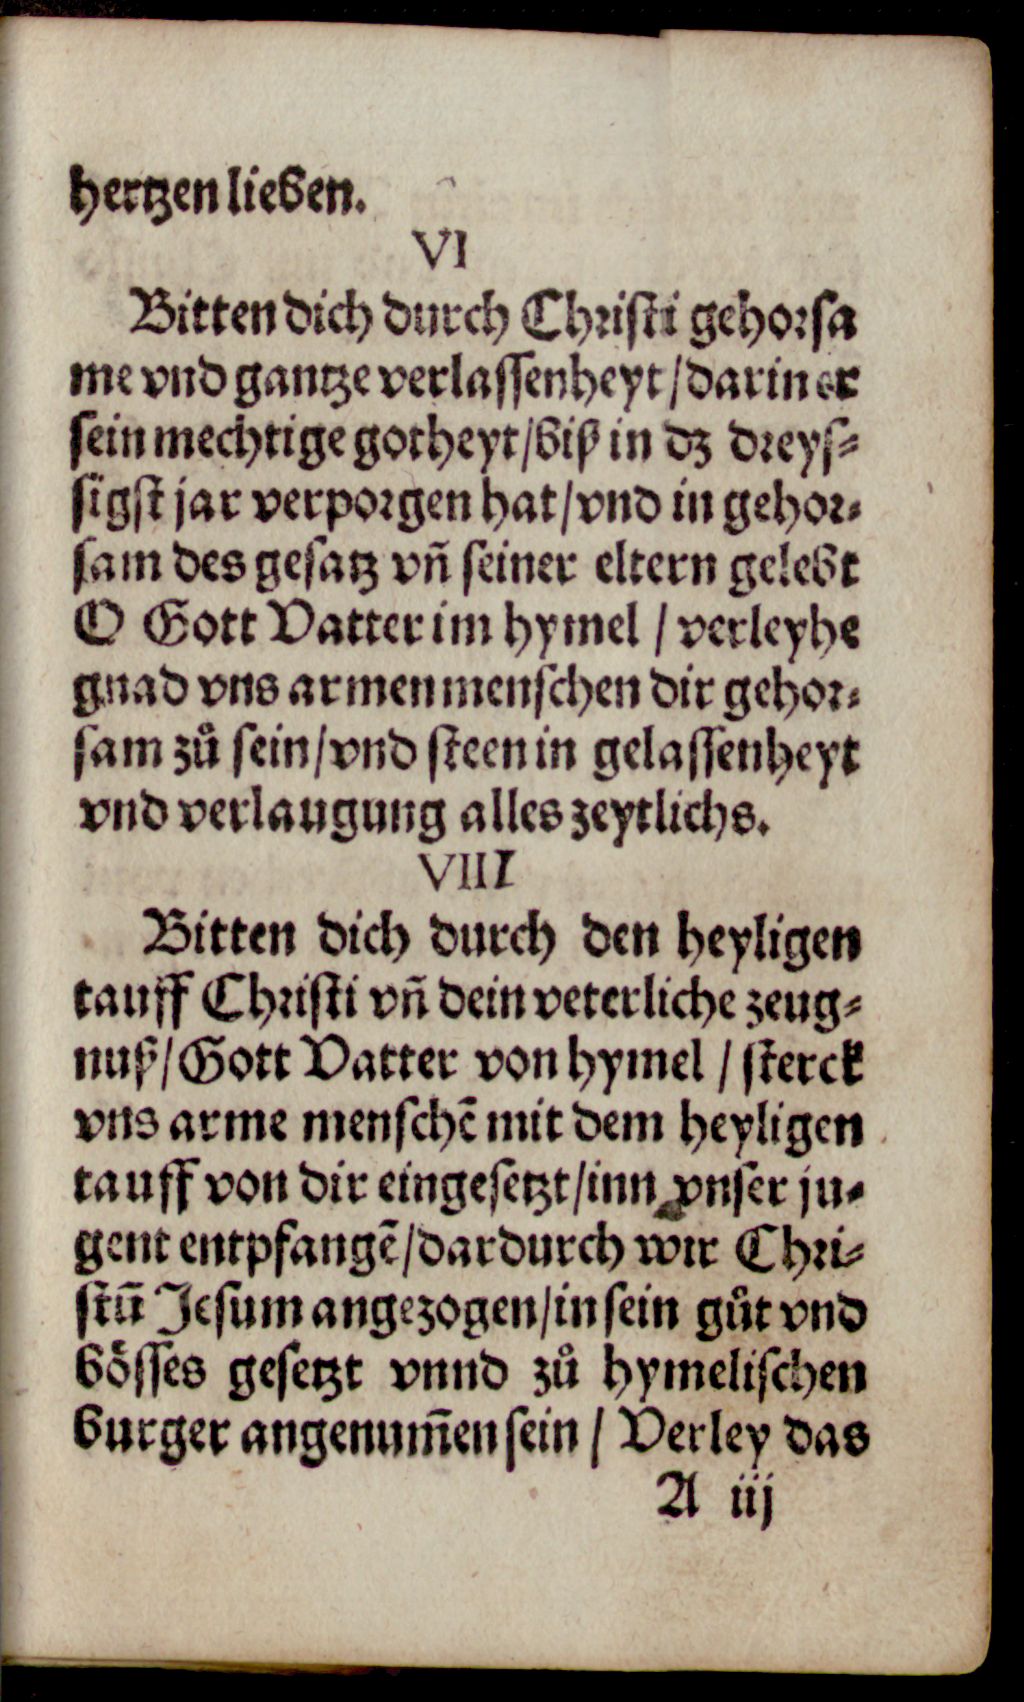 hertzen lieben.
VI
Bitten dich durch Christi gehorsa
me vnd gantze verlassenheyt / darin er
sein mechtige gotheyt / biß in dz dreys⸗
sigst jar verporgen hat / vnd in gehor⸗
sam des gesatz vn̄ seiner eltern gelebt
O Gott Vatter im hymel / verleyhe
gnad vns armen menschen dir gehor⸗
sam zů sein / vnd steen in gelassenheyt
vnd verlaugung alles zeytlichs.
VIII
Bitten dich durch den heyligen
tauff Christi vn̄ dein veterliche zeug⸗
nuß / Gott Vatter von hymel / sterck
vns arme menschē mit dem heyligen
tauff von dir eingesetzt / inn vnser ju⸗
gent entpfangē / dardurch wir Chri⸗
stū Jesum angezogen / in sein gůt vnd
bösses gesetzt vnnd zů hymelischen
burger angenum̄en sein / Verley das
A iij